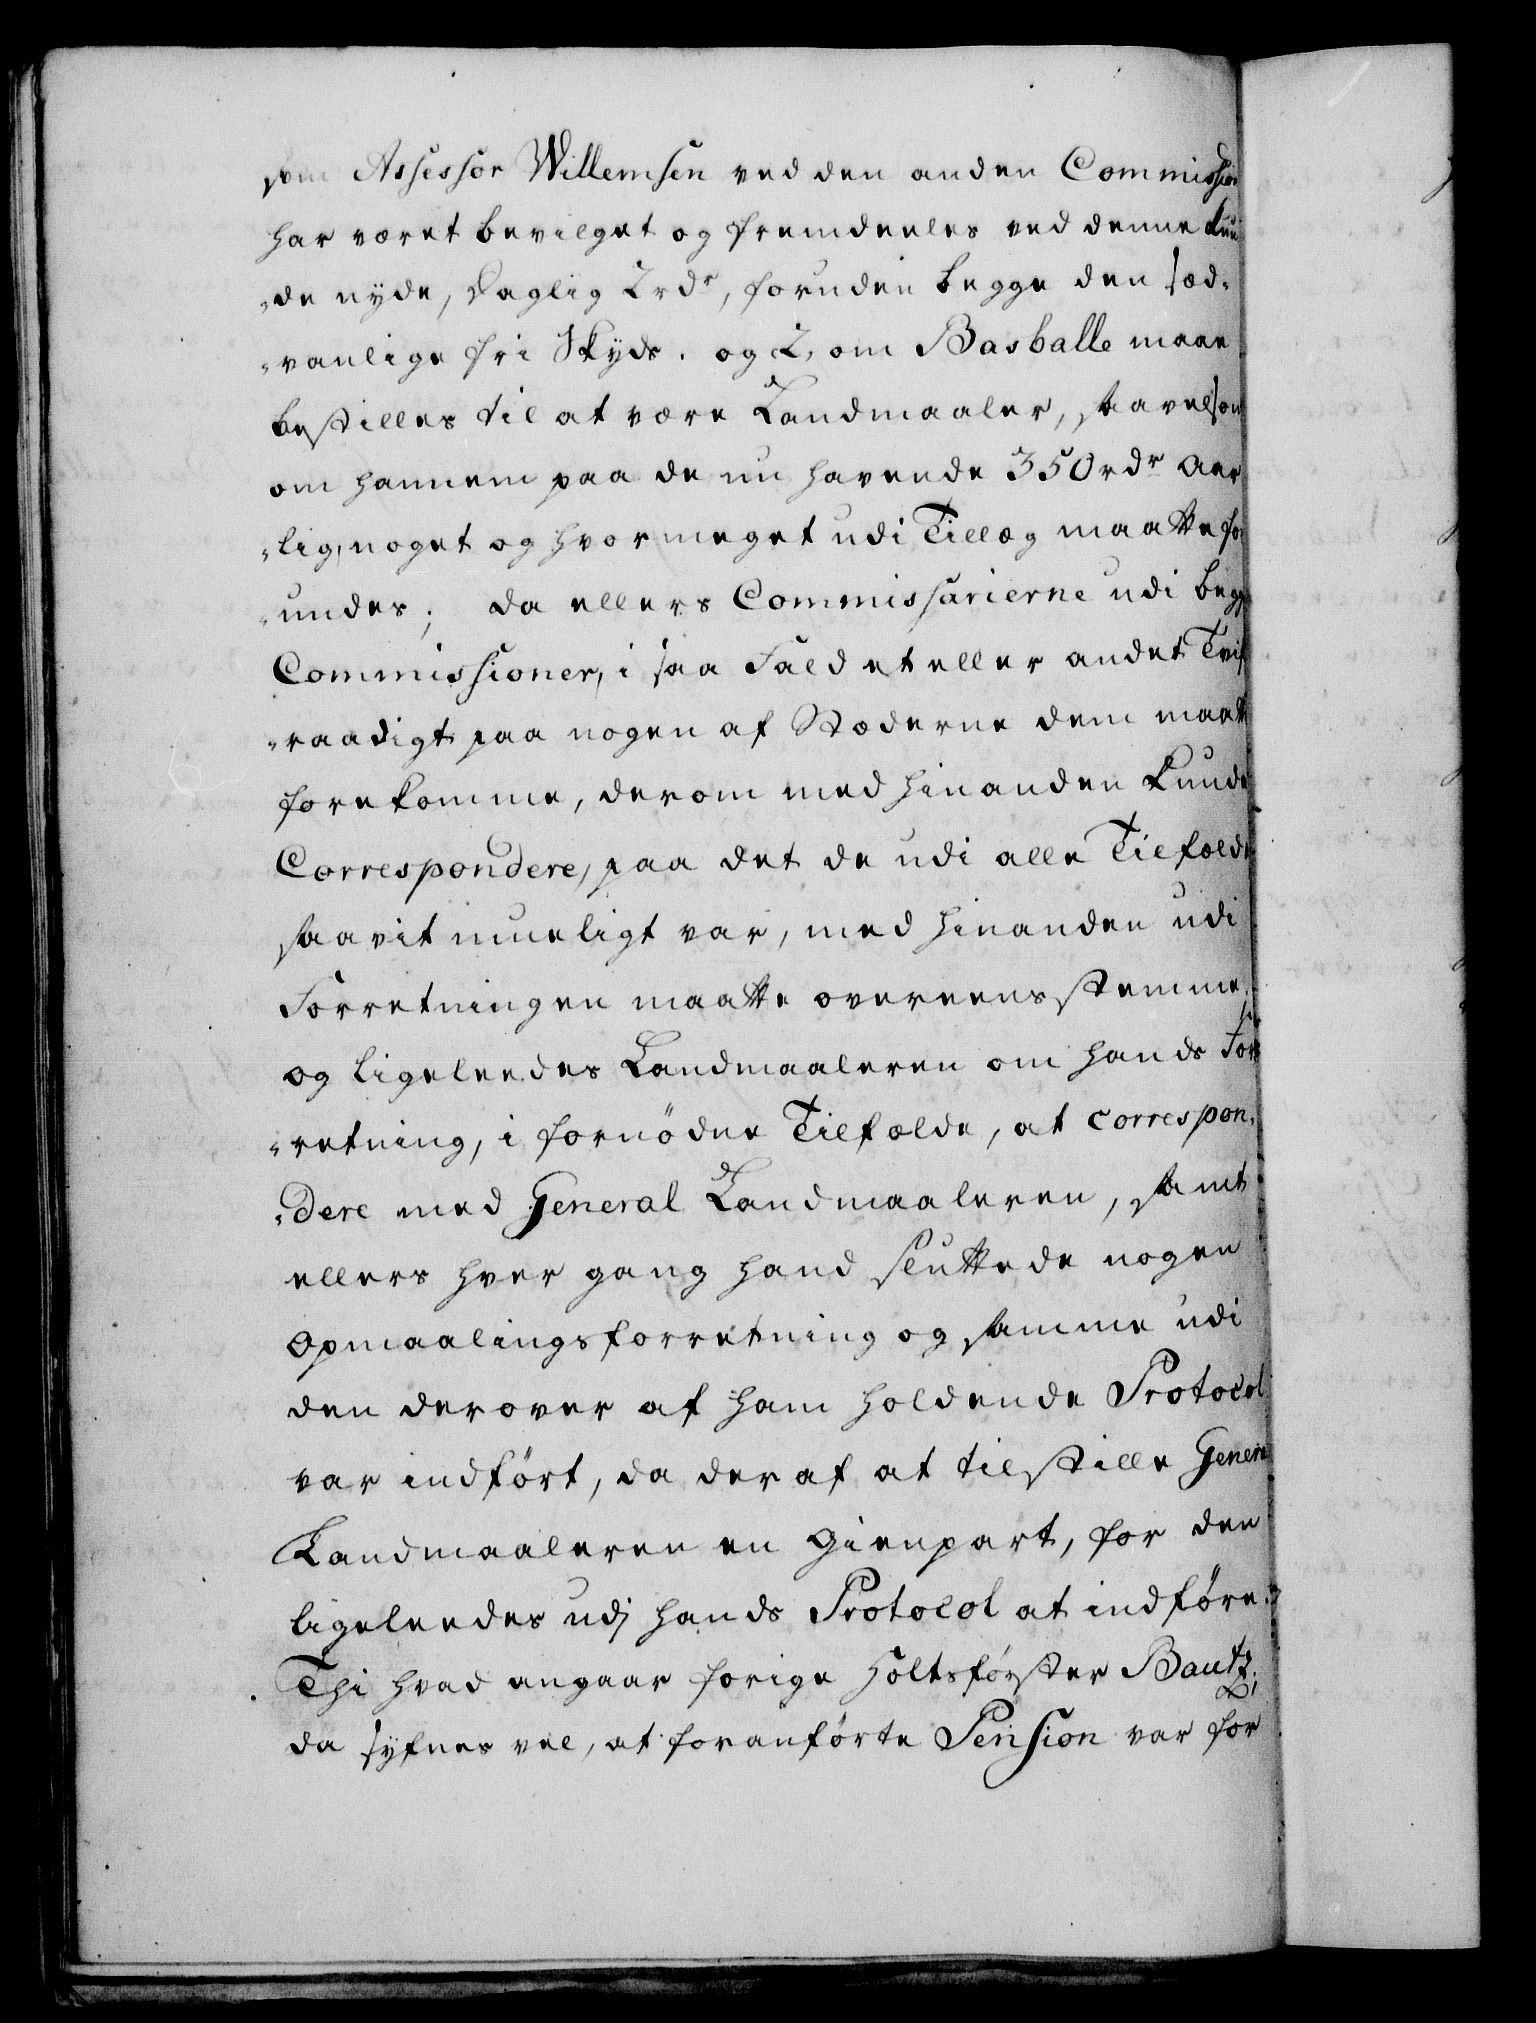 som Assessor Willemsen ved den anden Commission
har været bevilget og fremdeeles ved denne kun
-de nyde, Daglig 2 rdr, foruden begge den sæd-
-vanlige fri Skyds. og 2, om Basballe maae
bestilles til at være Landmaaler, saavelsom
om hannem paa de nu havende 350 rdr Aar
-lig, noget og hvormeget udi Tillæg maatte for
-undes; da ellers Commissarierne udi begge
Commissioner, i saa Fald et eller andet Tvif
-raadigt paa nogen af Stæderne dem maatte
forekomme, derom med hinanden kunde
Correspondere, paa det de udi alle Tilfælde
saavit mueligt var, med hinanden udi
Forretningen maatte overeensstemme,
og ligeleedes Landmaaleren om hands For
-retning, i fornödne Tilfælde, at correspon-
-dere med General Landmaaleren, samt
ellers hver gang hand sluttede nogen
Opmaalingsforretning og samme udi
den derover af ham holdende Protocol
var indfört, da deraf at tilstille General
Landmaaleren en Gienpart, for den
ligeleedes udj hands Protocol at indföre.
Thi hvad angaar forige Holtsförster Bautz;
da syfnes vel, at foranförte Pension var for